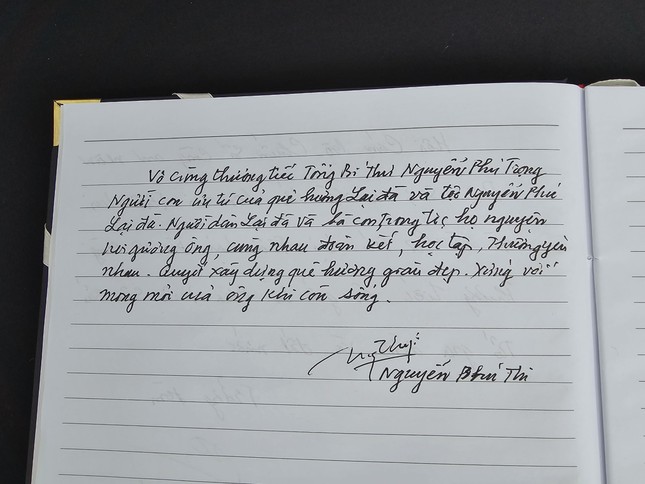 Vô cùng thương tiếc Tổng Bí thư Nguyễn Phú Trọng
Người con ưu tú của quê hương Lại Đà và tộc Nguyễn Phú
Lại đà. Người dân Lại đà và bà con trong tộc họ nguyện
noi gương ông, cùng nhau đoàn kết, học tập, thương yêu
nhau. Quyết xây dựng quê hương giàu đẹp. Xứng với
mong mỏi của ông khi còn sống.
Nguyễn Phú Thi